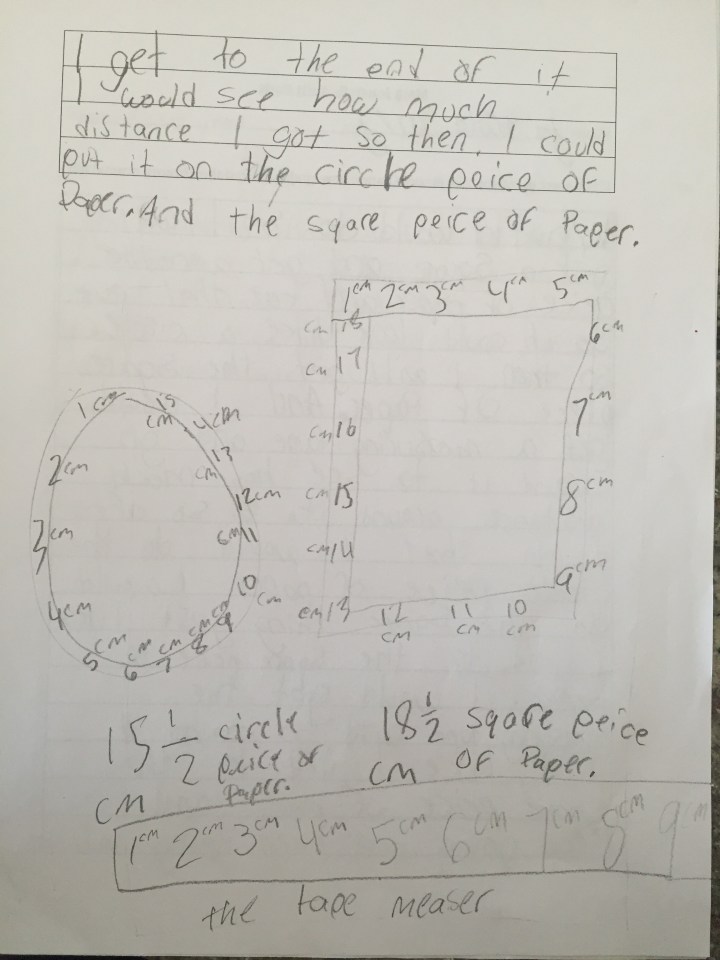 I get to the end of it
I would see how much
distance I got so then, I could
put it on the circle peice of
Paper. And the sqare peice of Paper.
1cm 2cm 3cm 4cm 5cm
cm 18
6cm
cm 17
7cm
cm 16
8cm
cm 15
cm 14
9cm
cm 13
12 cm
11 cm
10 cm
1cm
15 cm
4cm
13 cm
2cm
12cm
3cm
cm 11
10 cm
4cm
5cm
6cm
7cm
8cm
9cm
15 1/2 circle
peice of
Paper.
cm
18 1/2 sqare peice
cm of Paper.
1cm 2cm 3cm 4cm 5cm 6cm 7cm 8cm 9cm
the tape measer